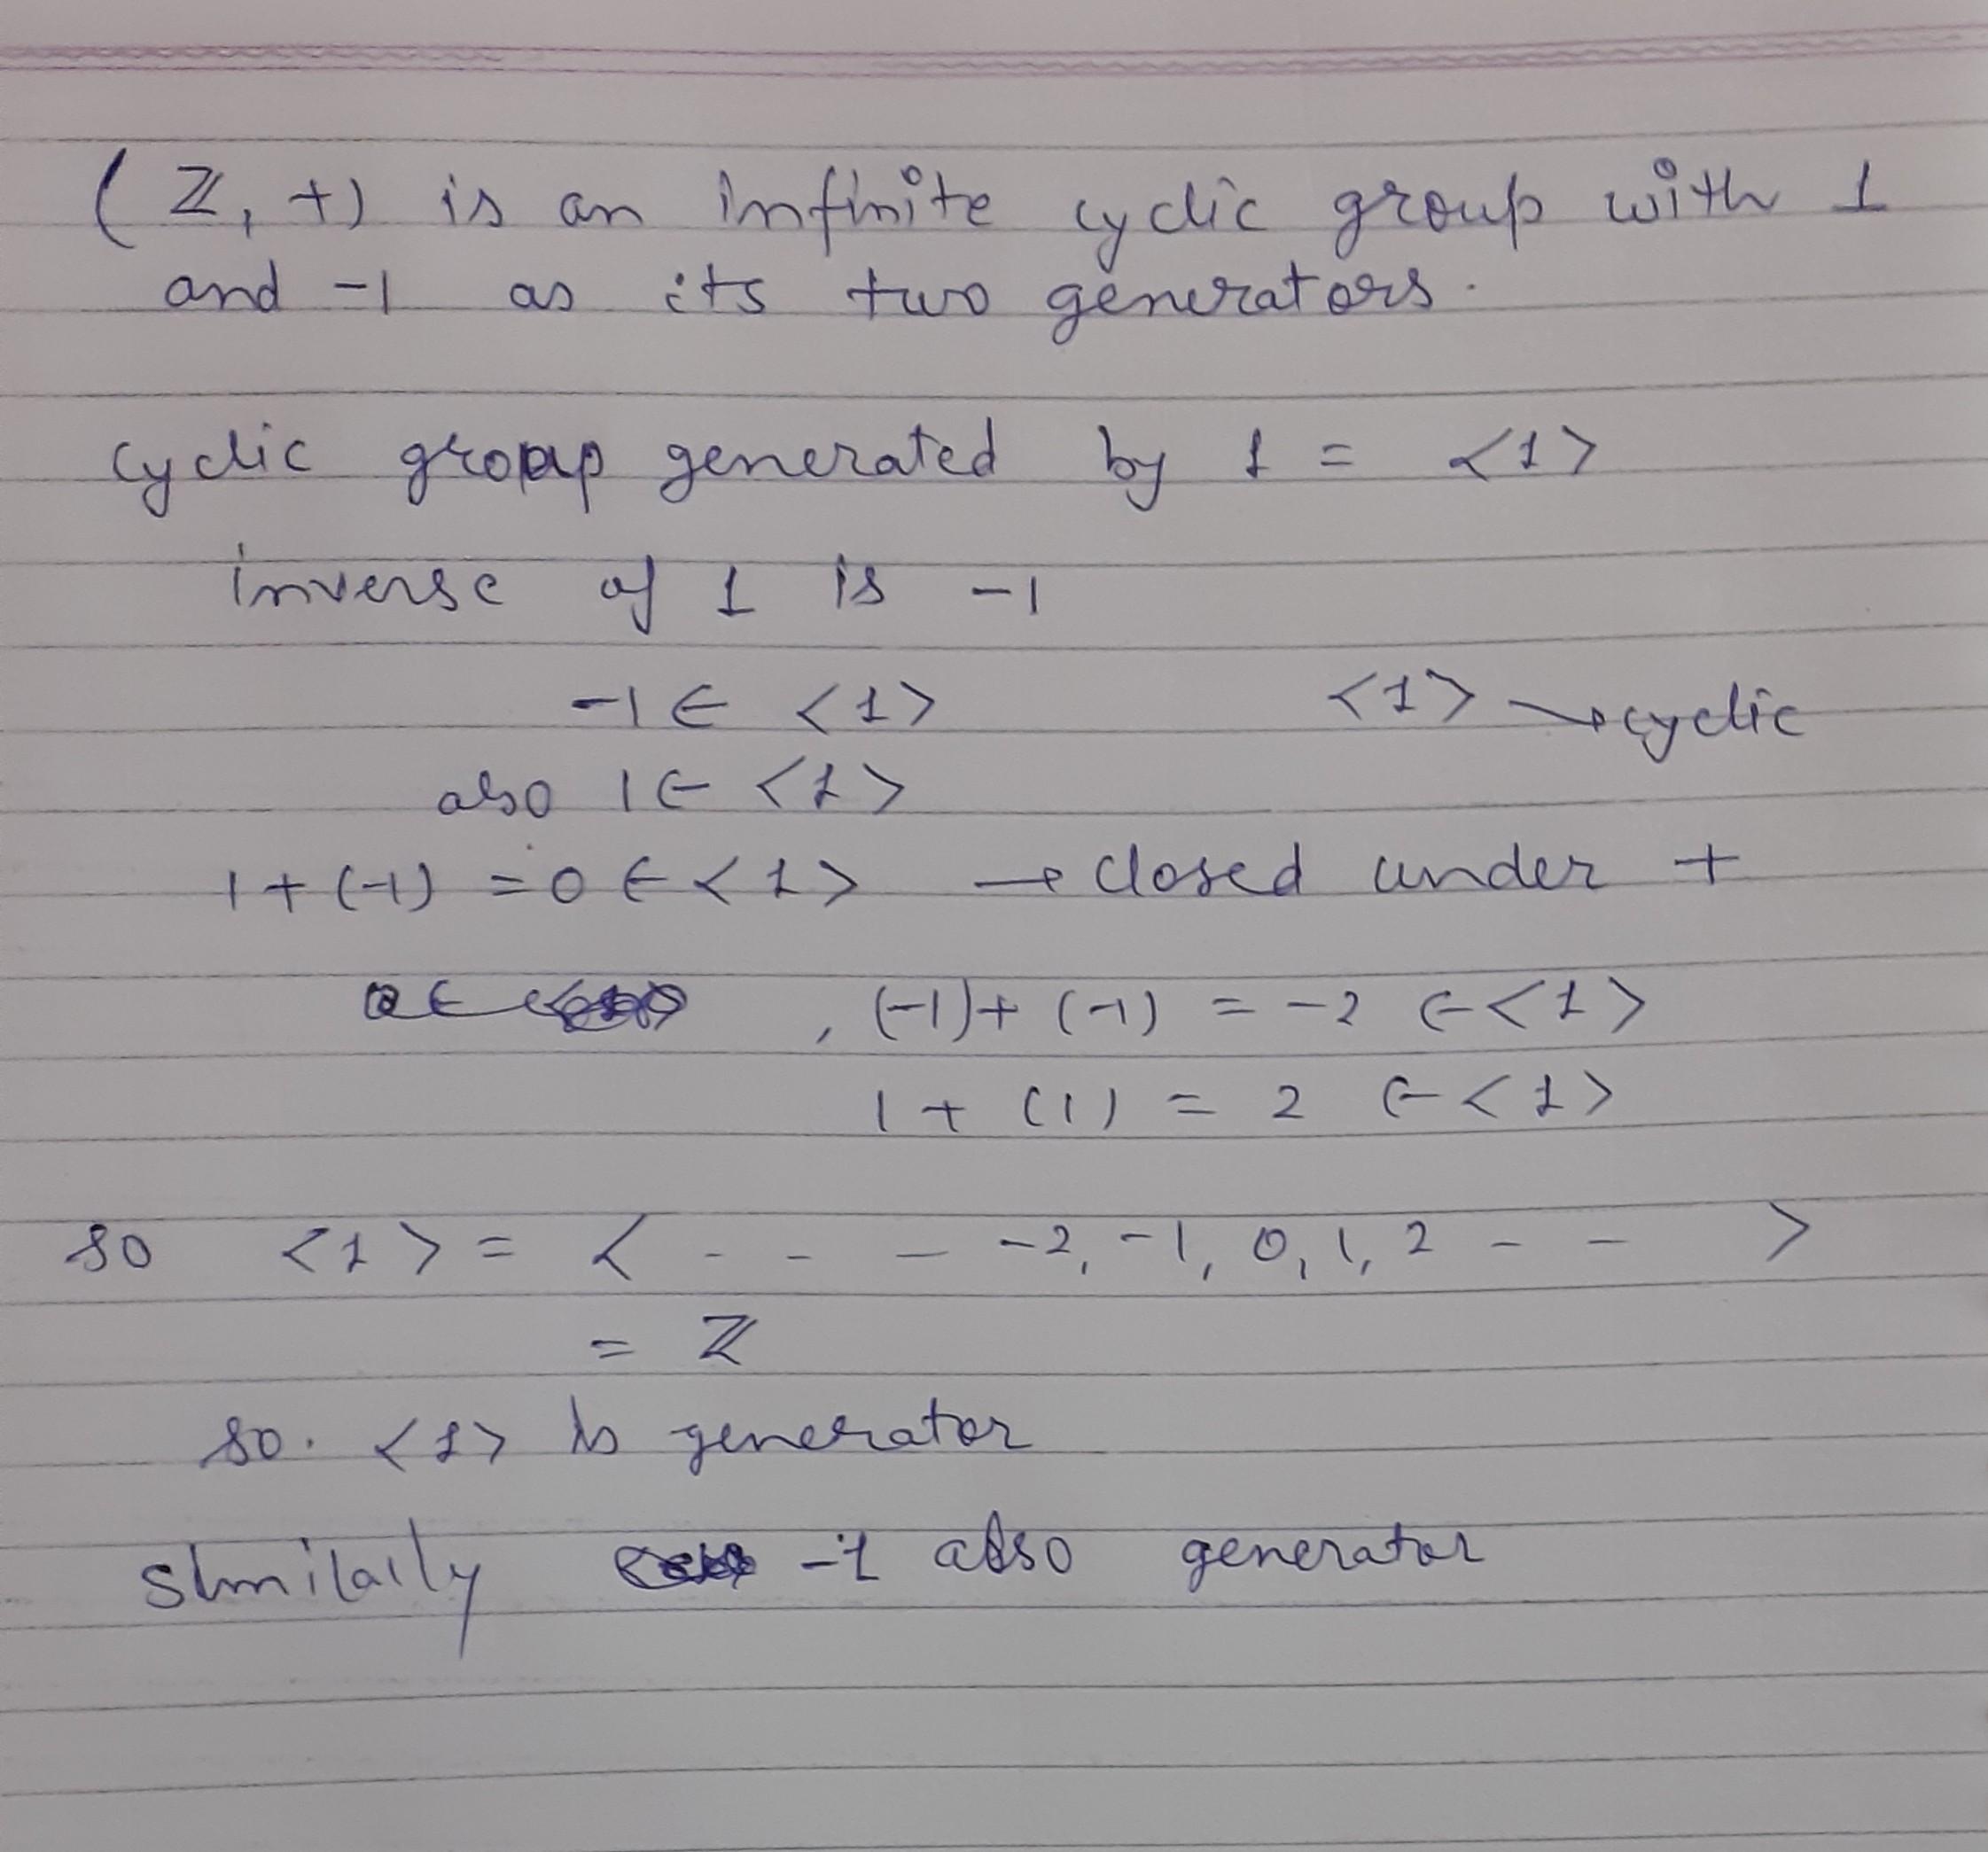 (ℤ, +) is an infinite cyclic group with 1
and -1 as its two generators.
cyclic group generated by 1 = <1>
inverse of 1 is -1
-1 ∈ <1> <1> → cyclic
also 1 ∈ <1>
1 + (-1) = 0 ∈ <1> → closed under +
, (-1) + (-1) = -2 ∈ <1>
1 + (1) = 2 ∈ <1>
so <1> = < - - - -2, -1, 0, 1, 2 - - >
= ℤ
so. <1> is generator
similarly -1 also generator